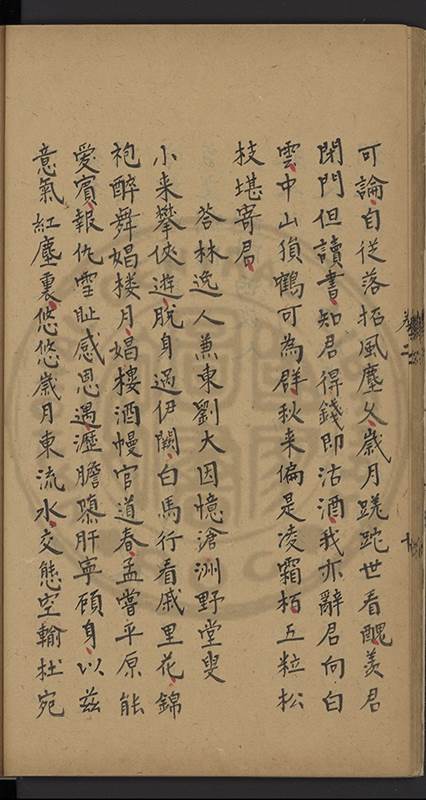 可論自從落拓風塵久歲月蹉跎世看醜羨君
閉門但讀書知君得錢即沽酒我亦辭君向白
雲中山猨鶴可為群秋来偏是凌霜栢五粒松
枝堪寄君
荅林逸人兼柬劉大因憶滄洲野堂叟
小来攀俠遊脫身過伊闕白馬行看戚里花錦
袍醉舞娼楼月娼樓酒幔官道春孟嘗平原能
愛賓報仇雪耻感恩遇瀝膽隳肝寧顧身以茲
意氣紅塵裏悠悠歲月東流水交態空輸杜宛